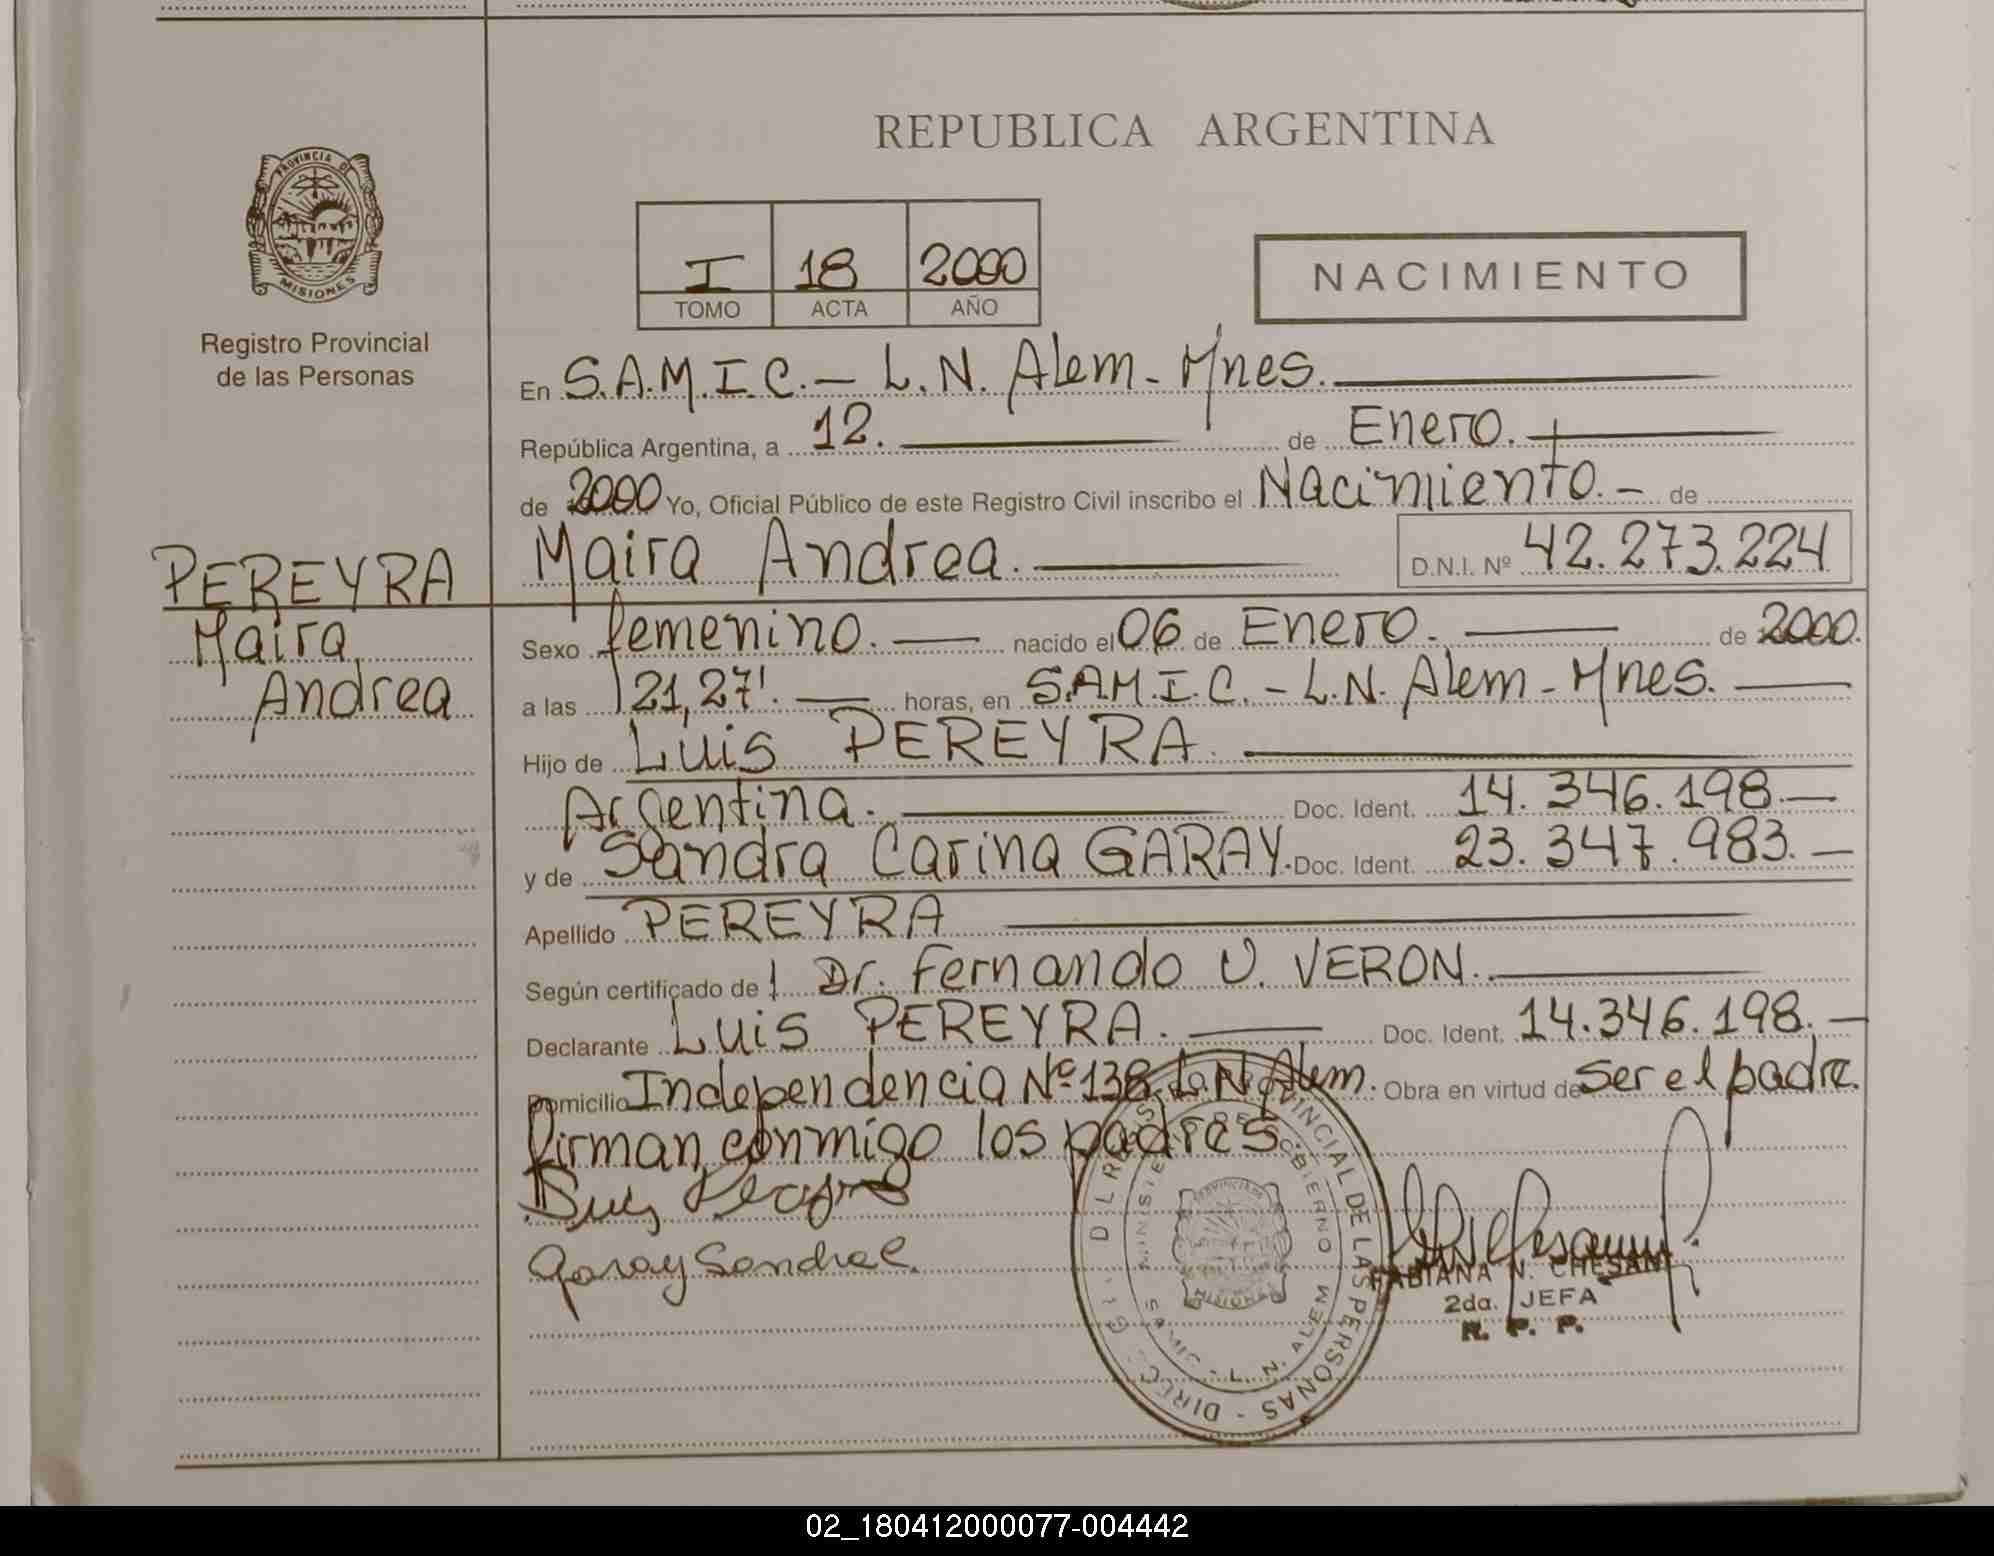 REPUBLICA ARGENTINA
PROVINCIA DE
MISIONES
Registro Provincial
de las Personas
I 18 2000
TOMO ACTA AÑO
NACIMIENTO
En S.A.M.I.C.- L.N. Alem- Mnes.
República Argentina, a 12. de Enero.
de 2000 Yo, Oficial Público de este Registro Civil inscribo el Nacimiento.- de
Maira Andrea. D.N.I. Nº 42.273.224
PEREYRA
Maira
Andrea
Sexo femenino. nacido el 06 de Enero. de 2000.
a las 21,27'. horas, en S.A.M.I.C.- L.N. Alem- Mnes.
Hijo de Luis PEREYRA.
Argentina. Doc. Ident. 14.346.198.-
y de Sandra Carina GARAY. Doc. Ident. 23.347.983.-
Apellido PEREYRA
Según certificado de Dr. Fernando V. VERON.
Declarante Luis PEREYRA. Doc. Ident. 14.346.198.-
Domicilio Independencia Nº 138 L.N. Alem. Obra en virtud de ser el padre.
firman conmigo los padres.
Luis Pereyra
Garay Sandra C.
FABIANA N. CHESANI
2da. JEFA
R. P. P.
PROVINCIAL DE LAS PERSONAS - DIREC
SAMIC - L. N. ALEM
02_180412000077-004442